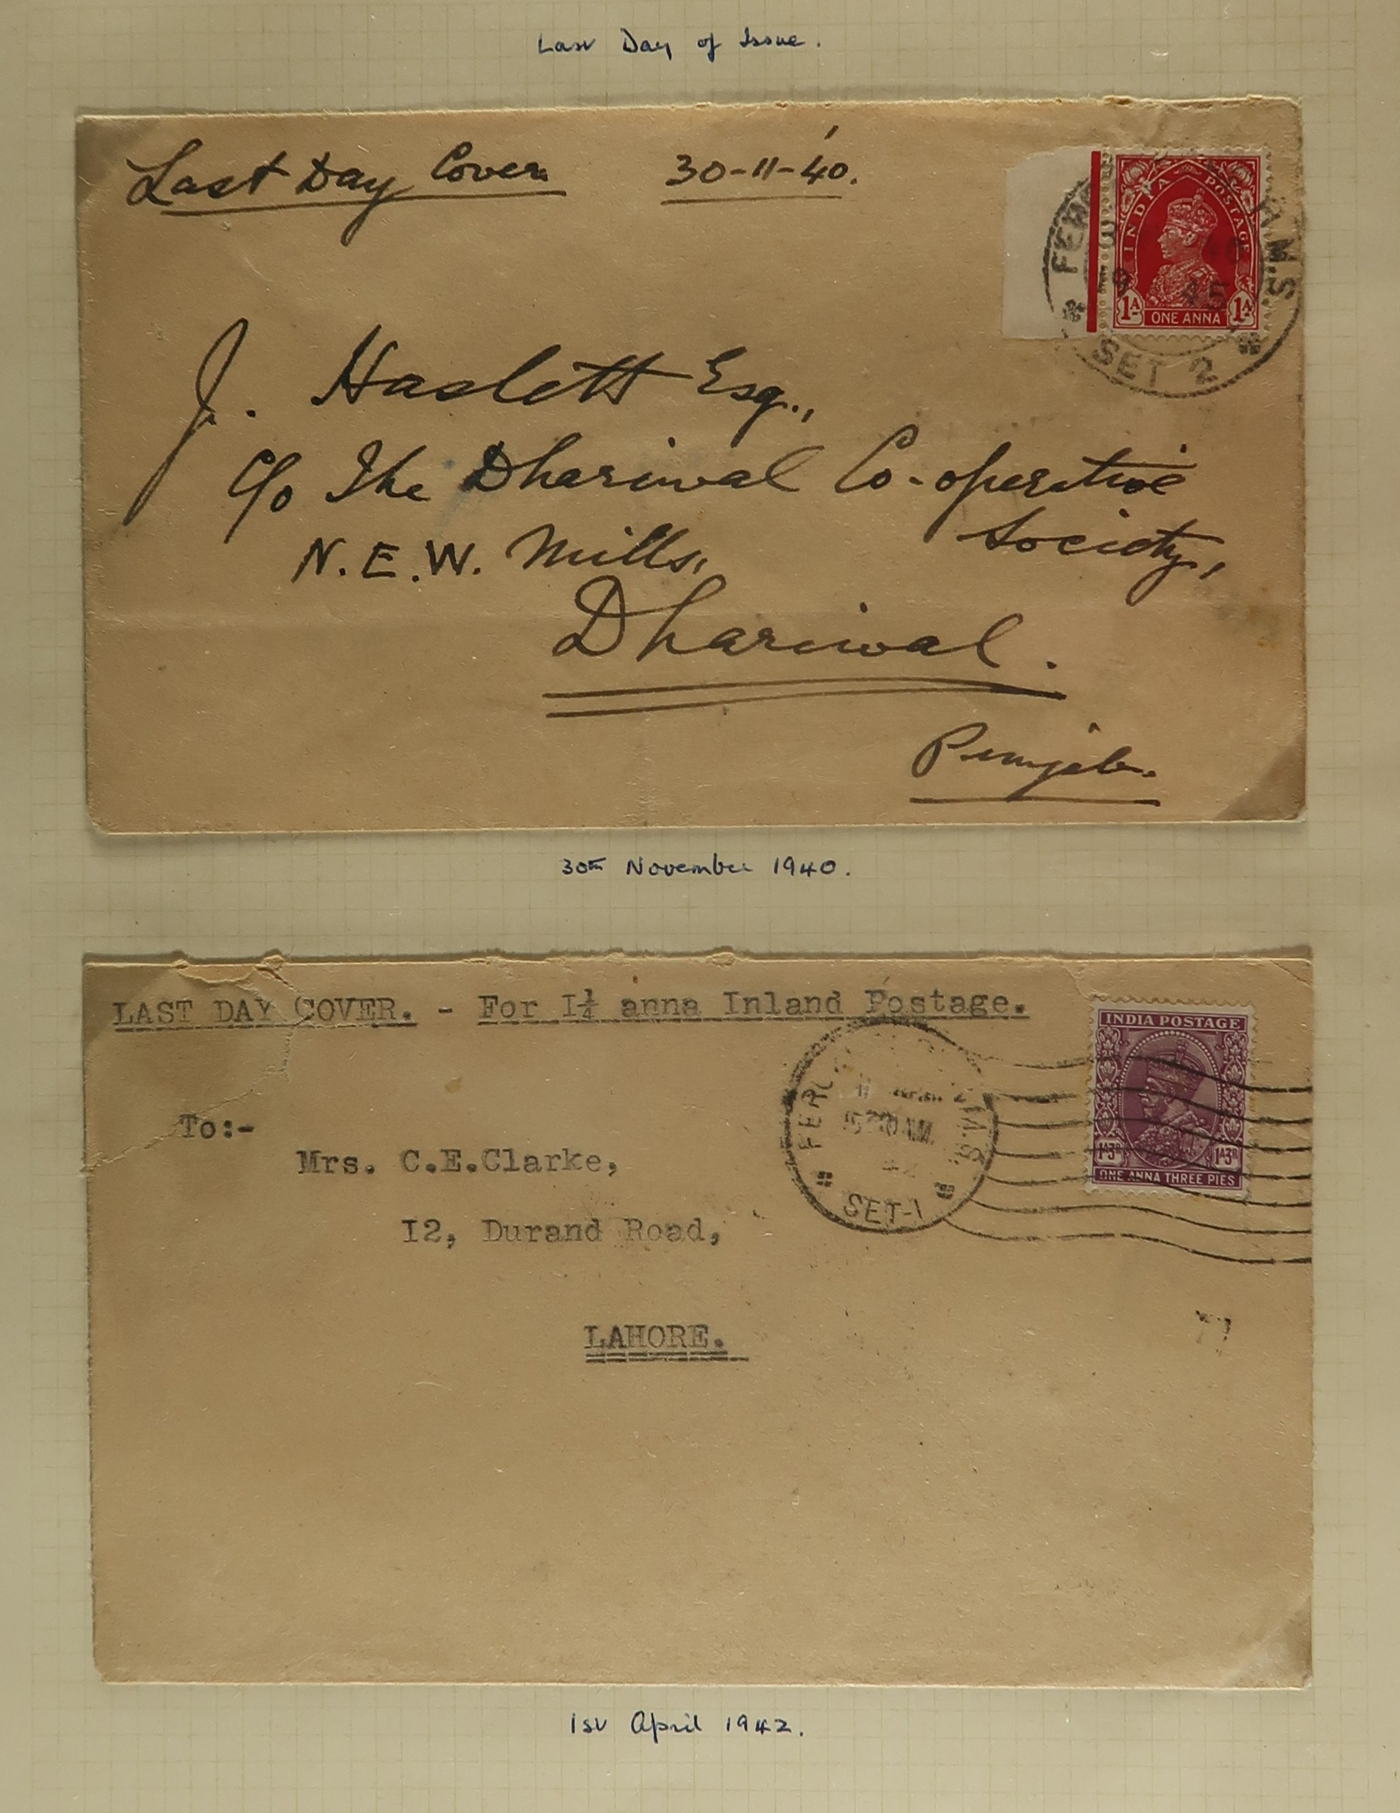 Last Day of Issue.
Last Day Cover 30-11-40.
INDIA POSTAGE
1A 1A
ONE ANNA
SET 2
J. Haslett Esq.,
c/o The Dhariwal Co-operative
Society,
N.E.W. Mills,
Dhariwal.
Punjab.
30th November 1940.
LAST DAY COVER. - For I¼ anna Inland Postage.
INDIA POSTAGE
1A3P 1A3P
ONE ANNA THREE PIES
SET-1
To:-
Mrs. C.E.Clarke,
I2, Durand Road,
LAHORE.
1st April 1942.